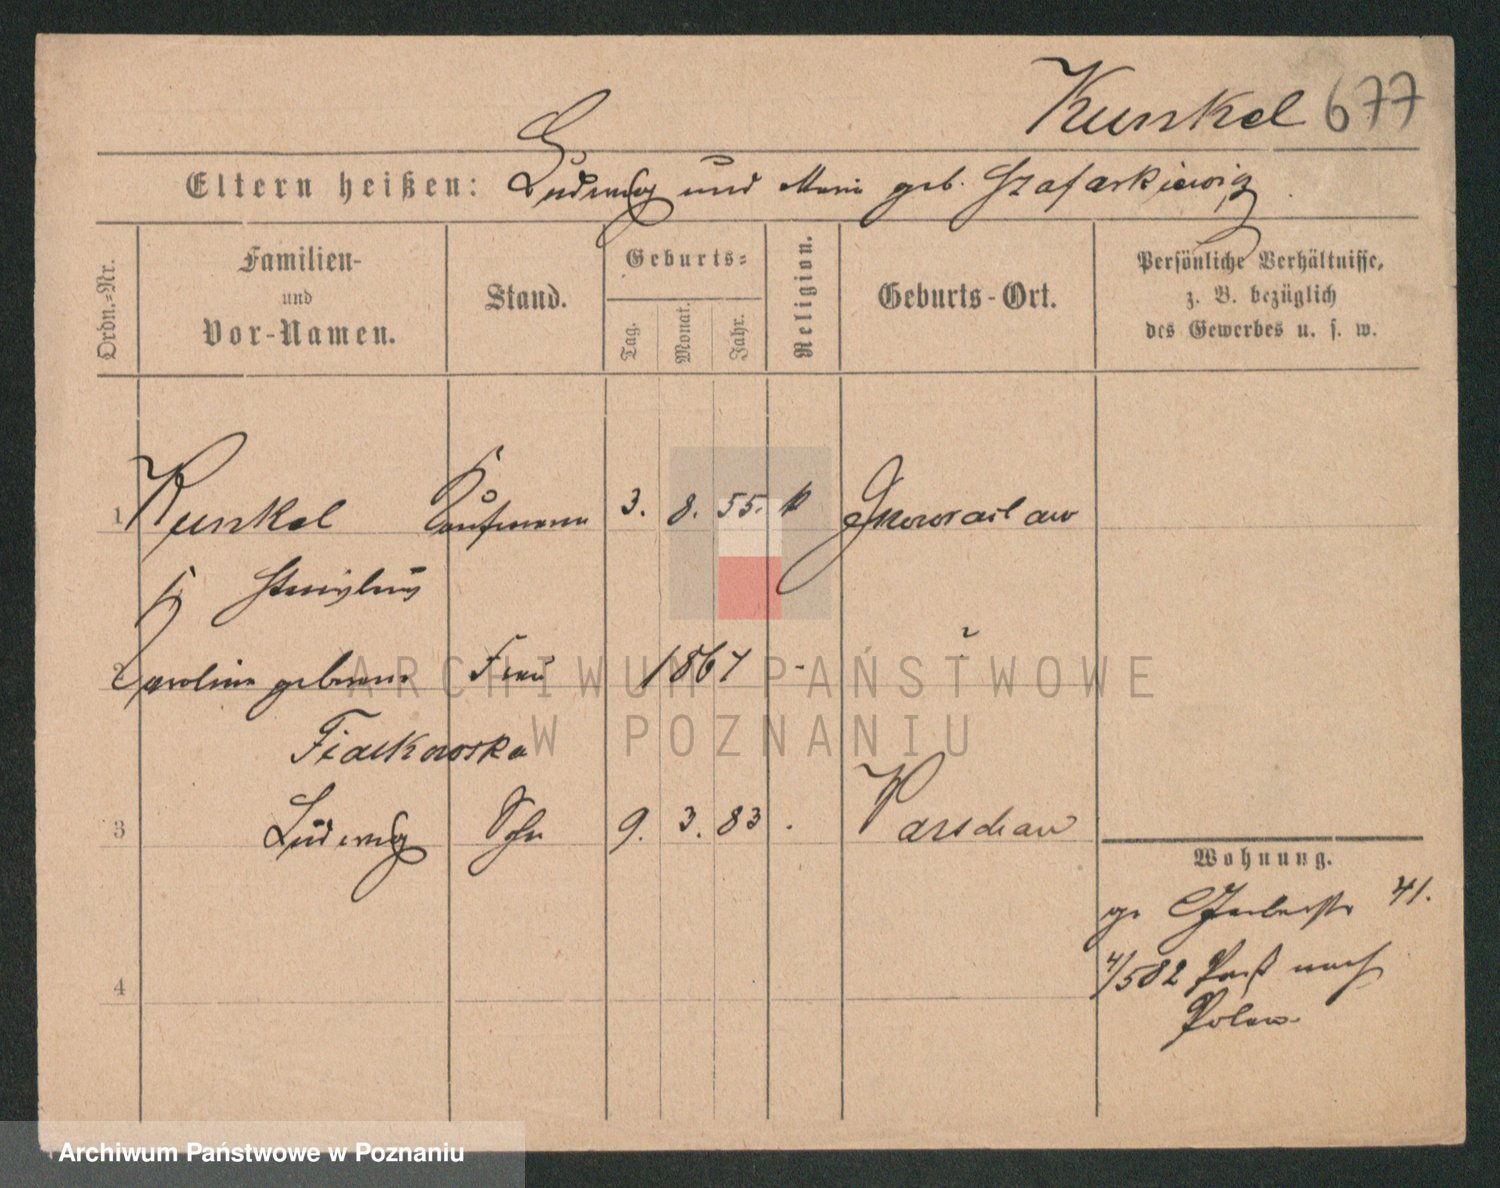 Kunkel 677
Eltern heißen: Ludwig und Marie geb. Szafarkiewicz
Ordn.-Nr.
Familien-
und
Vor-Namen.
Stand.
Geburts-
Tag.
Monat.
Jahr.
Religion.
Geburts-Ort.
Persönliche Verhältnisse,
z. B. bezüglich
des Gewerbes u. s. w.
1 Kunkel Kaufmann 3. 8. 55. k Inowraclaw
Stanislaus
2 Caroline geborene Frau 1861 -
Fialkowska
3 Ludwig Sohn 9. 3. 83 . Warschau
4
Wohnung.
gr Gerberstr 41.
4/582 Paß nach
Polen
ARCHIWUM PAŃSTWOWE
W POZNANIU
Archiwum Państwowe w Poznaniu